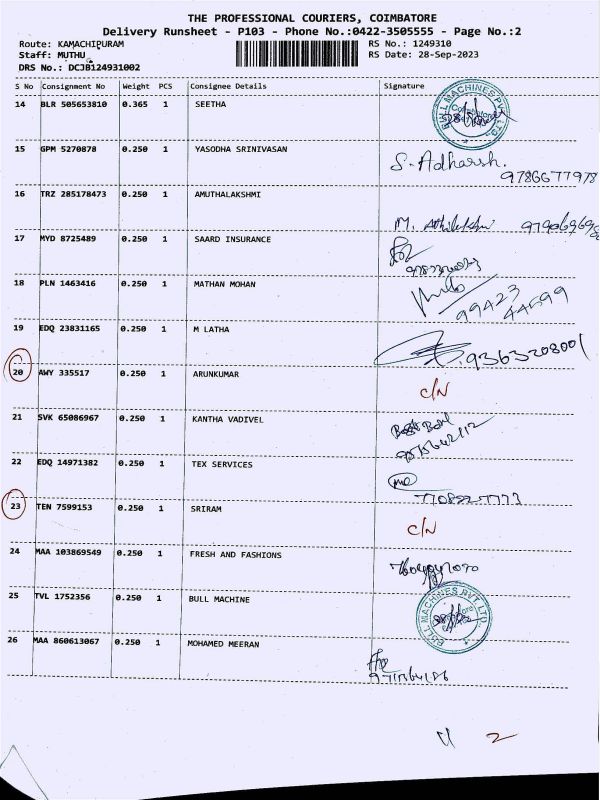 THE PROFESSIONAL COURIERS, COIMBATORE
Delivery Runsheet - P103 - Phone No.:0422-3505555 - Page No.:2
Route: KAMACHIPURAM
RS No.: 1249310
Staff: MUTHU
RS Date: 28-Sep-2023
DRS No.: DCJB124931002
S No Consignment No Weight PCS Consignee Details Signature
14 BLR 505653810 0.365 1 SEETHA
BULL MACHINES PVT LTD
15 GPM 5270878 0.250 1 YASODHA SRINIVASAN
S. Adharsh.
9786677978
16 TRZ 285178473 0.250 1 AMUTHALAKSHMI
M.
17 MYD 8725489 0.250 1 SAARD INSURANCE
18 PLN 1463416 0.250 1 MATHAN MOHAN
99423
44599
19 EDQ 23831165 0.250 1 M LATHA
9363208001
20 AWY 335517 0.250 1 ARUNKUMAR
C/N
21 SVK 65086967 0.250 1 KANTHA VADIVEL
22 EDQ 14971382 0.250 1 TEX SERVICES
23 TEN 7599153 0.250 1 SRIRAM
C/N
24 MAA 103869549 0.250 1 FRESH AND FASHIONS
25 TVL 1752356 0.250 1 BULL MACHINE
BULL MACHINES PVT LTD
26 MAA 860613067 0.250 1 MOHAMED MEERAN
11 2